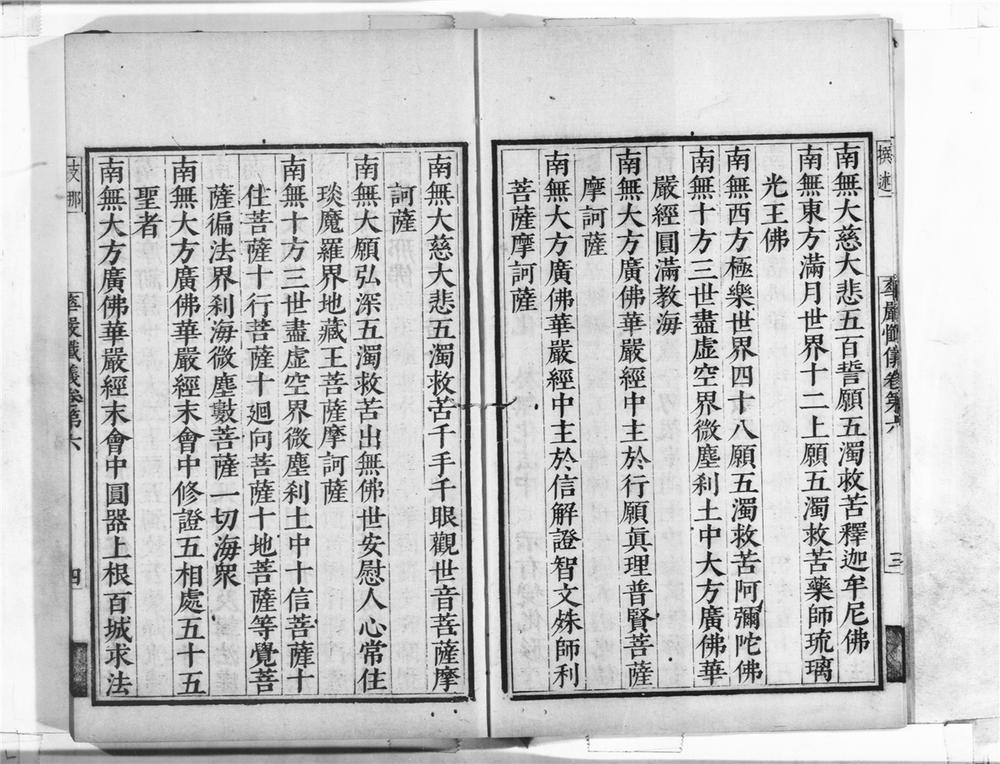 撰述
華嚴懺儀卷第六
三
南無大慈大悲五百誓願五濁救苦釋迦牟尼佛
南無東方滿月世界十二上願五濁救苦藥師琉璃
光王佛
南無西方極樂世界四十八願五濁救苦阿彌陀佛
南無十方三世盡虛空界微塵刹土中大方廣佛華
嚴經圓滿教海
南無大方廣佛華嚴經中主於行願眞理普賢菩薩
摩訶薩
南無大方廣佛華嚴經中主於信解證智文殊師利
菩薩摩訶薩
南無大慈大悲五濁救苦千手千眼觀世音菩薩摩
訶薩
南無大願弘深五濁救苦出無佛世安慰人心常住
琰魔羅界地藏王菩薩摩訶薩
南無十方三世盡虛空界微塵刹土中十信菩薩十
住菩薩十行菩薩十廻向菩薩十地菩薩等覺菩
薩徧法界刹海微塵數菩薩一切海衆
南無大方廣佛華嚴經末會中修證五相處五十五
聖者
南無大方廣佛華嚴經末會中圓器上根百城求法
支那
華嚴懺儀卷第六
四